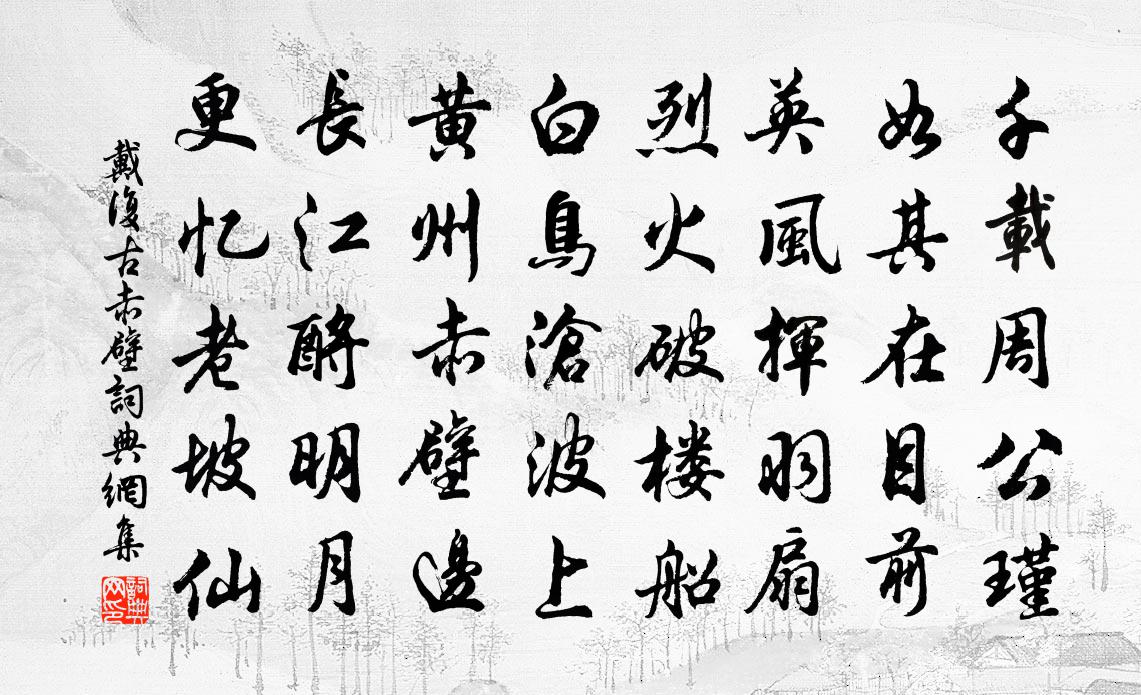 千載周公瑾
如其在目前
英風揮羽扇
烈火破楼船
白鳥滄波上
黃州赤壁邊
長江酹明月
更忆老坡仙
戴復古赤壁詞典網集
詞典網印